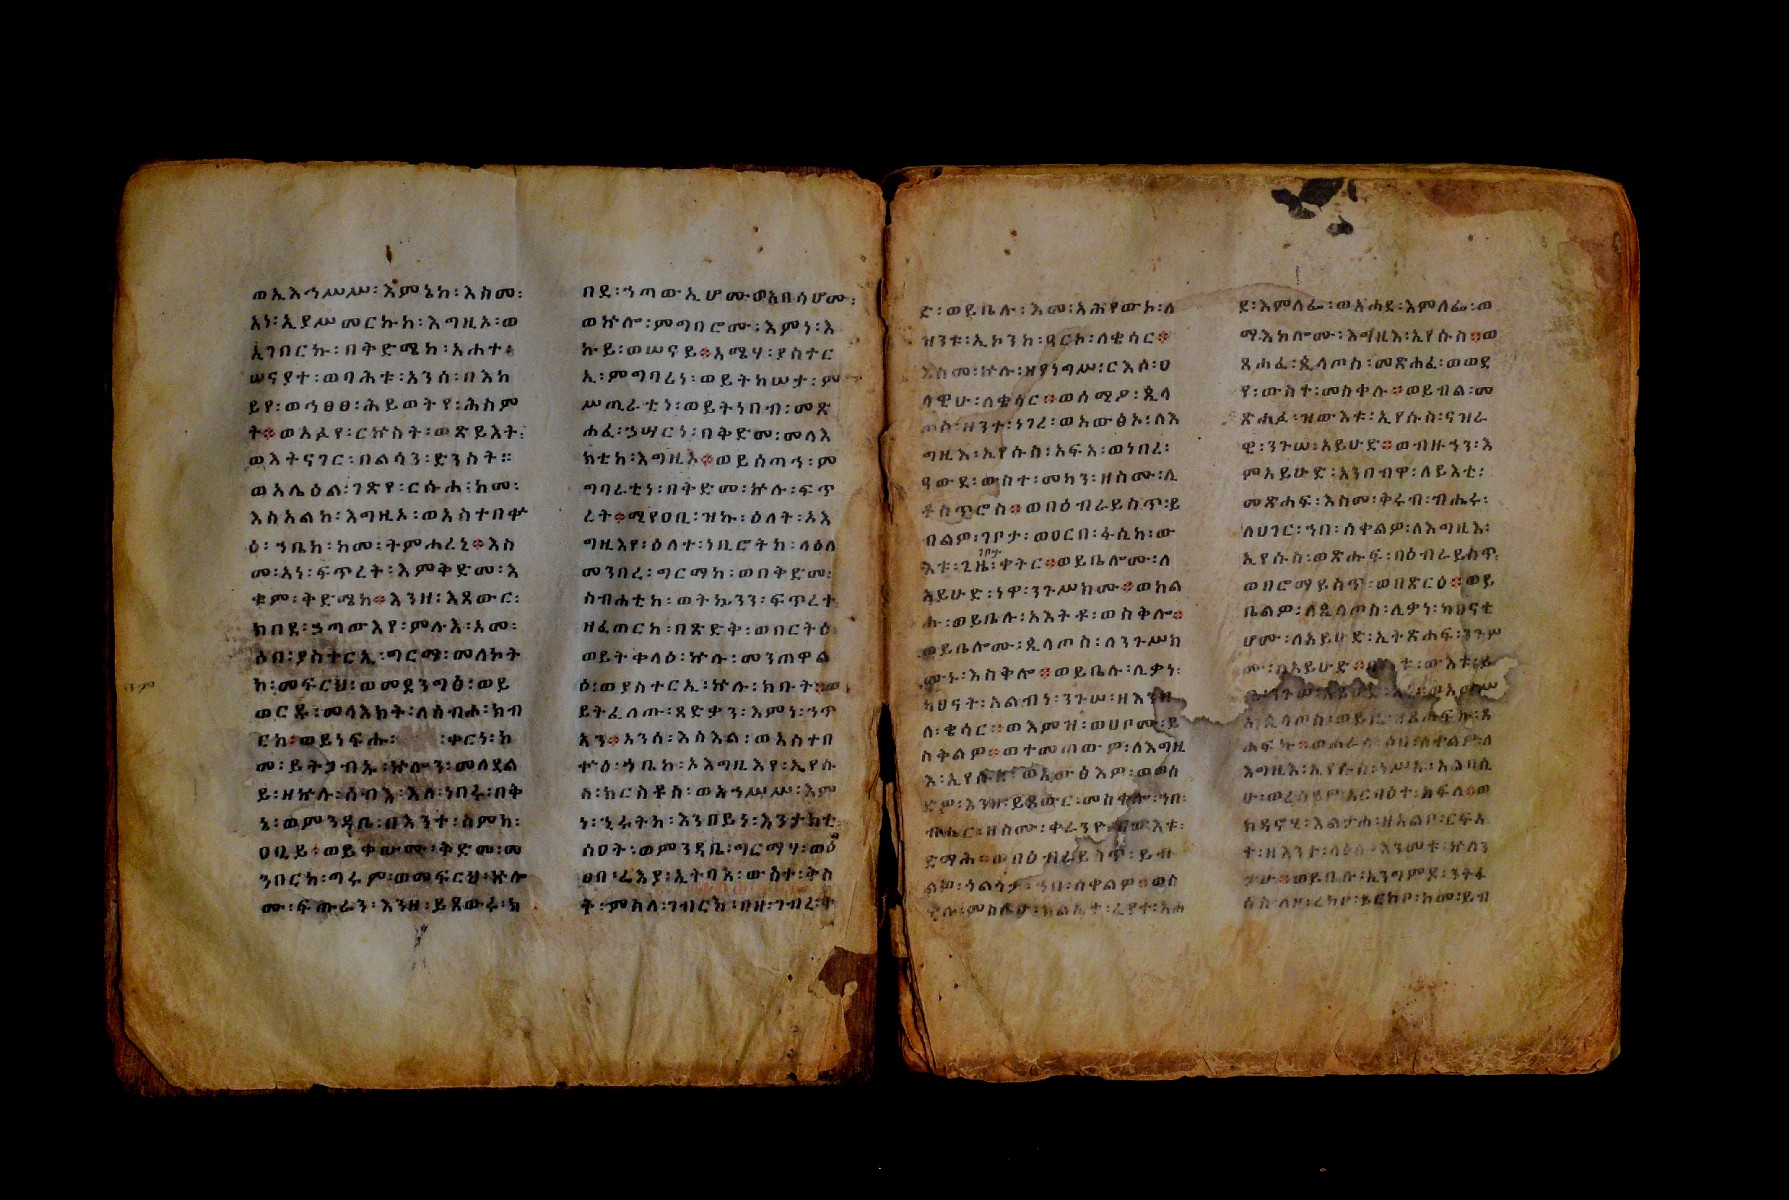 ወኢእኅሥሥ፡እምኔከ፡እስመ፡
አነ፡ኢደሥመርኩከ፡እግዚኦ፡ወ
ኢገበርኩ፡በቅድሜከ፡አሐተ፡
ሠናያተ፡ወባሕቱ፡አንሰ፡በእከ
ይየ፡ወኀፀፀ፡ሕይወትየ፡ሕስም
ት፨ወአፈየ፡ርኵስት፡ወጽይእት፡
ወእትናገር፡በልሳን፡ድንስት።
ወአሌዕል፡ገጽየ፡ርሱሐ፡ከመ፡
እስአልከ፡እግዚኦ፡ወአስተበቍ
ዕ፡ኀቤከ፡ከመ፡ትምሐረኒ፨እስ
መ፡አነ፡ፍጥረት፡እምቅድመ፡እ
ቁም፡ቅድሜከ፨እንዘ፡እጸውር፡
ክበደ፡ኃጣውእየ፡ምሉእ፡አመ፡
ዕበ፡ያስተርኢ፡ግርማ፡መለኮት
ከ፡መፍርህ፡ወመደንግፅ፡ወይ
ወርዱ፡መላእክት፡ለስብሐ፡ክብ
ርከ፡ወይነፍሑ፡ ፡ቀርነ፡ከ
መ፡ይትጋብኡ፡ኵሎን፡መለደል
ይ፡ዘኵሉ፡ሰብእ፡እለ፡ነበሩ፡በቅ
ኔ፡ወምንዳቤ፡በእንተ፡ስምከ፡
ዐቢይ፡ወይቀውሙ፡ቅድመ፡መ
ንበርከ፡ግሩም፡ወመፍርህ፡ኵሎ
ሙ፡ፍጡራን፡እንዘ፡ይጸውሩ፡ክ
በደ፡ኀጣውኢሆሙ፡ወአበሳሆሙ፡
ወኵሎ፡ምግባሮሙ፡እምነ፡እ
ኩይ፡ወሠናይ፨አሜሃ፡ያስተር
ኢ፡ምግባሪነ፡ወይትከሠታ፡ም
ሥጢራቲነ፡ወይትነበብ፡መጽ
ሐፈ፡ኃሣርነ፡በቅድመ፡መላእ
ክቲከ፡እግዚኦ፨ወይሰጣኅ፡ም
ግባራቲነ፡በቅድመ፡ኵሉ፡ፍጥ
ረት፨ሚየዐቢ፡ዝኩ፡ዕለት፡ኦእ
ግዚእየ፡ዕለተ፡ነቢሮትከ፡ላዕለ
መንበረ፡ግርማከ፡ወበቅድመ፡
ስብሐቲከ፡ወትኴንን፡ፍጥረተ
ዘፈጠርከ፡በጽድቅ፡ወበርትዕ
ወይትቀላዕ፡ኵሉ፡መንጠዋል
ዕ፡ወያስተርኢ፡ኵሉ፡ክቡት፨ወ
ይትፈለጡ፡ጻድቃን፡እምነ፡ኃጥ
አን፨አንሰ፡እስእል፡ወአስተበ
ቍዕ፡ኀቤከ፡ኦእግዚእየ፡ኢየሱ
ስ፡ክርስቶስ፡ወአኅሥሥ፡እም
ነ፡ኂሩትከ፡እንበይነ፡እንታክቲ
ሰዐት፡ወምንዳቤ፡ግርማሃ፡ወዕ
ድ፡ወይቤሉ፡እመ፡አሕየውከ፡ለ
ዝንቱ፡ኢኮንከ፡ዓርከ፡ለቄሳር፨
እስመ፡ኵሉ፡ዘያነግሥ፡ርእሰ፡ዐ
ላዊሁ፡ለቄሳር፨ወሰሚዖ፡ጲላ
ጦስ፡ዘንተ፡ነገረ፡ወአውፅኦ፡ለእ
ግዚእ፡ኢየሱስ፡አፍአ፡ወነበረ፡
ዓውደ፡ውስተ፡መካን፡ዘስሙ፡ሊ
ቶስጥሮስ፨ወበዕብራይስጥ፡ይ
ብልዎ፡ገቦታ፡ወዐርበ፡ፋሲካ፡ው
እቱ፡ጊዜ፡ቀትር፨ወይቤሎሙ፡ለ
አይሁድ፡ነዋ፡ንጉሥክሙ፨ወከል
ሑ፡ወይቤሉ፡አእትቶ፡ወስቅሎ፨
ወይቤሎሙ፡ጲላጦስ፡ለንጉሥክ
ሙኑ፡እስቅሎ፨ወይቤሉ፡ሊቃነ፡
ካህናት፡አልብነ፡ንጉሠ፡ዘእንበ
ለ፡ቄሳር፨ወእምዝ፡ወሀቦሙ፡ይ
ስቅልዎ፨ወተመጠውዎ፡ለእግዚ
እ፡ኢየሱስ፡ወአውፅእዎ፡ወወሰ
ድዎ፡እንዘ፡ይጸውር፡መስቀሎ፡ኀበ፡
ብሔር፡ዘስሙ፡ቀራንዮ
ደ፡እምለፌ፡ወአሐደ፡እምለፌ፡ወ
ማእከሎሙ፡እግዚእ፡ኢየሱስ፨ወ
ጸሐፈ፡ጲላጦስ፡መጽሐፈ፡ወወደ
የ፡ውስተ፡መስቀሉ፨ወይብል፡መ
ጽሐፉ፡ዝውእቱ፡ኢየሱስ፡ናዝራ
ዊ፡ንጉሠ፡አይሁድ፨ወብዙኃን፡እ
ምአይሁድ፡አንበብዋ፡ለይእቲ፡
መጽሐፍ፡እስመ፡ቅሩብ፡ብሔሩ፡
ለሀገር፡ኀበ፡ሰቀልዎ፡ለእግዚእ፡
ኢየሱስ፡ወጽሑፍ፡በዕብራይስጥ፡
ወበሮማይስጥ፡ወበጽርዕ፨ወይ
ቤልዎ፡ለጲላጦስ፡ሊቃነ፡ካህናቲ
ሆሙ፡ለአይሁድ፡ኢትጽሐፍ፡ንጉሦ